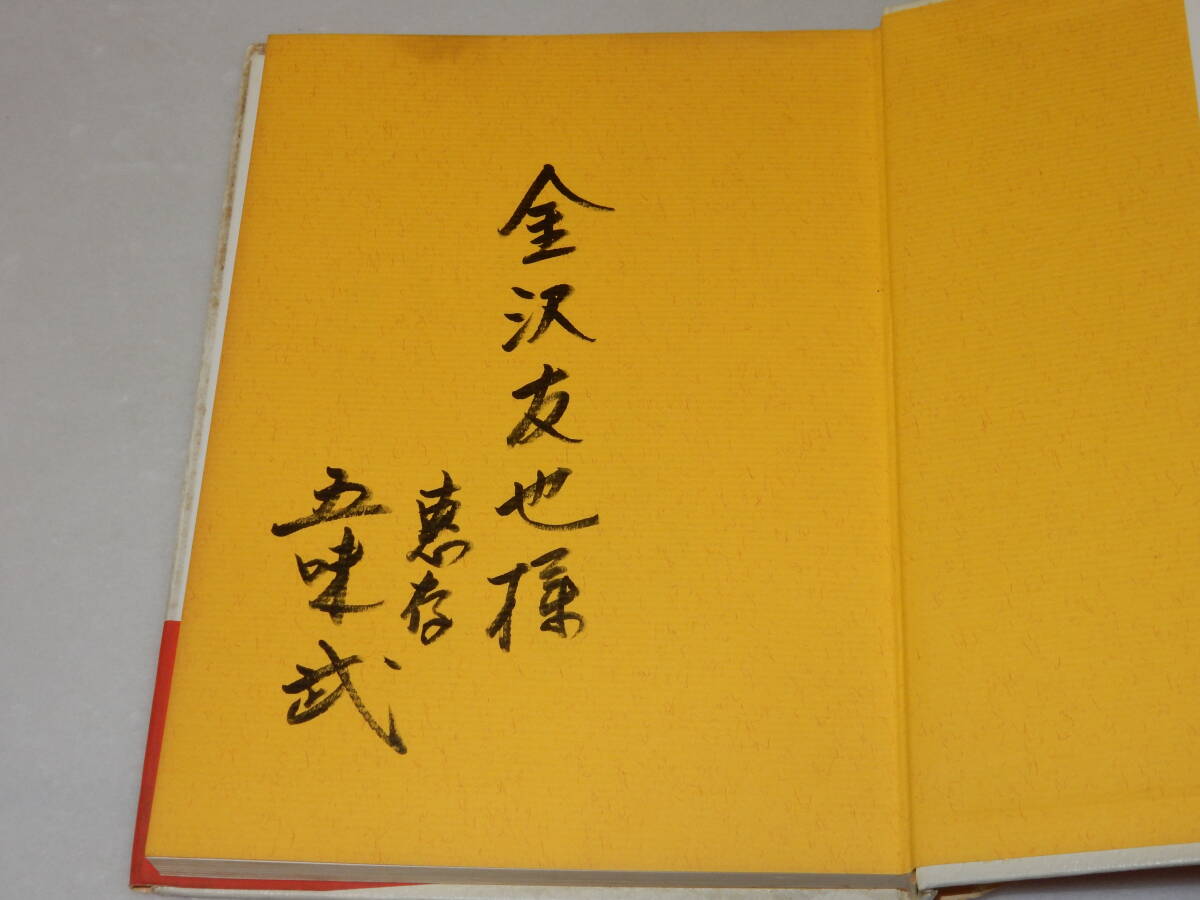 金沢友也様
恵存
五味武